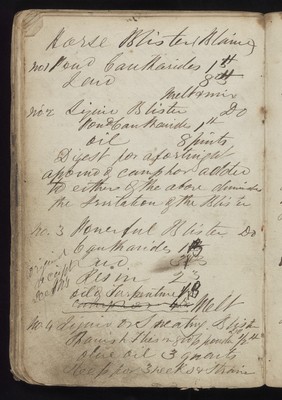 Horse Blister (Blaine)
No 1 Pond Cantharides 1 lb
Lard 8 lb
Melt & mix
No 2 Liquid Blister Do
Pond Cantharides 1 lb
oil 8 pints
Digest for a fortnight
a pound camphor added
to either of the above diminishes
the Irritation of the Blister
No. 3 Powerful Blister Do
Cantharides
Lard
Resin 2
oil of Turpentine
Melt
No. 4 Liquid or Sweating Blister
Spanish Flies
olive oil 3 quarts
Keep for 3 weeks & Strain